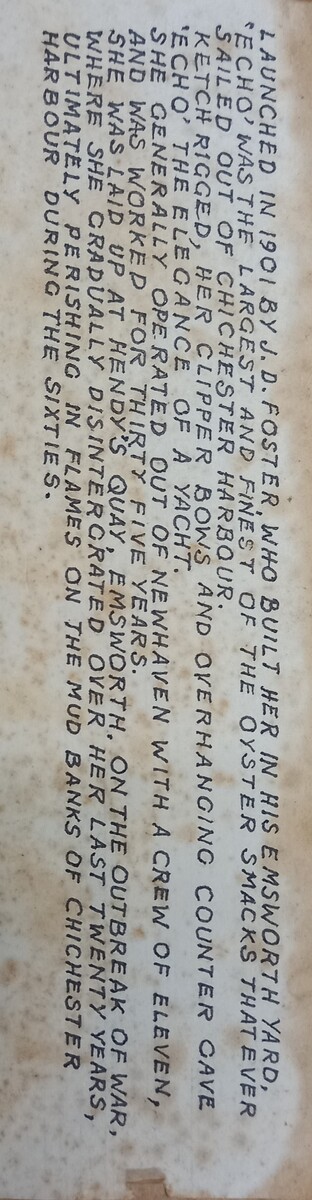 LAUNCHED IN 1901 BY J. D. FOSTER, WHO BUILT HER IN HIS EMSWORTH YARD,
'ECHO' WAS THE LARGEST AND FINEST OF THE OYSTER SMACKS THAT EVER
SAILED OUT OF CHICHESTER HARBOUR.
KETCH RIGGED, HER CLIPPER BOWS AND OVERHANGING COUNTER GAVE
'ECHO' THE ELEGANCE OF A YACHT.
SHE GENERALLY OPERATED OUT OF NEWHAVEN WITH A CREW OF ELEVEN,
AND WAS WORKED FOR THIRTY FIVE YEARS.
SHE WAS LAID UP AT HENDY'S QUAY, EMSWORTH. ON THE OUTBREAK OF WAR,
WHERE SHE GRADUALLY DISINTERGRATED OVER HER LAST TWENTY YEARS,
ULTIMATELY PERISHING IN FLAMES ON THE MUD BANKS OF CHICHESTER
HARBOUR DURING THE SIXTIES.